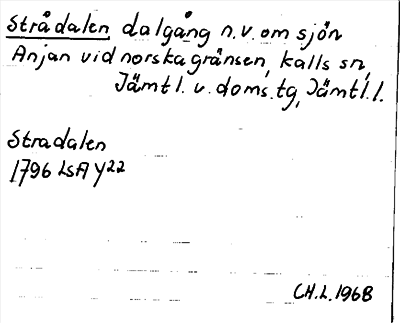 Strådalen dalgång n.v. om sjön
Anjan vid norska gränsen, Kalls sn,
Jämtl. v. doms. tg, Jämtl. l.
Stradalen
1796 LSA Y22
CH.L. 1968